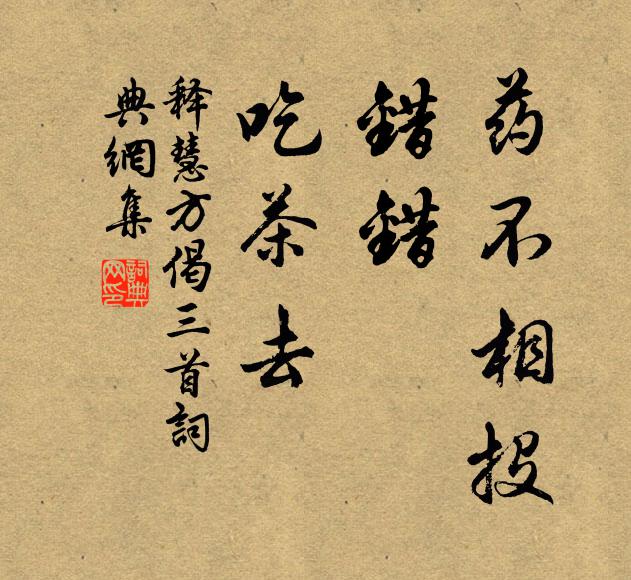 药不相投
错错
吃茶去
释慧方偈三首詞
典網集
詞典
网印